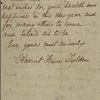 best wishes for your health and
happiness in this new year and
for many others to come
and believe me to be
Ever yours most sincerely
Harriet Tilden